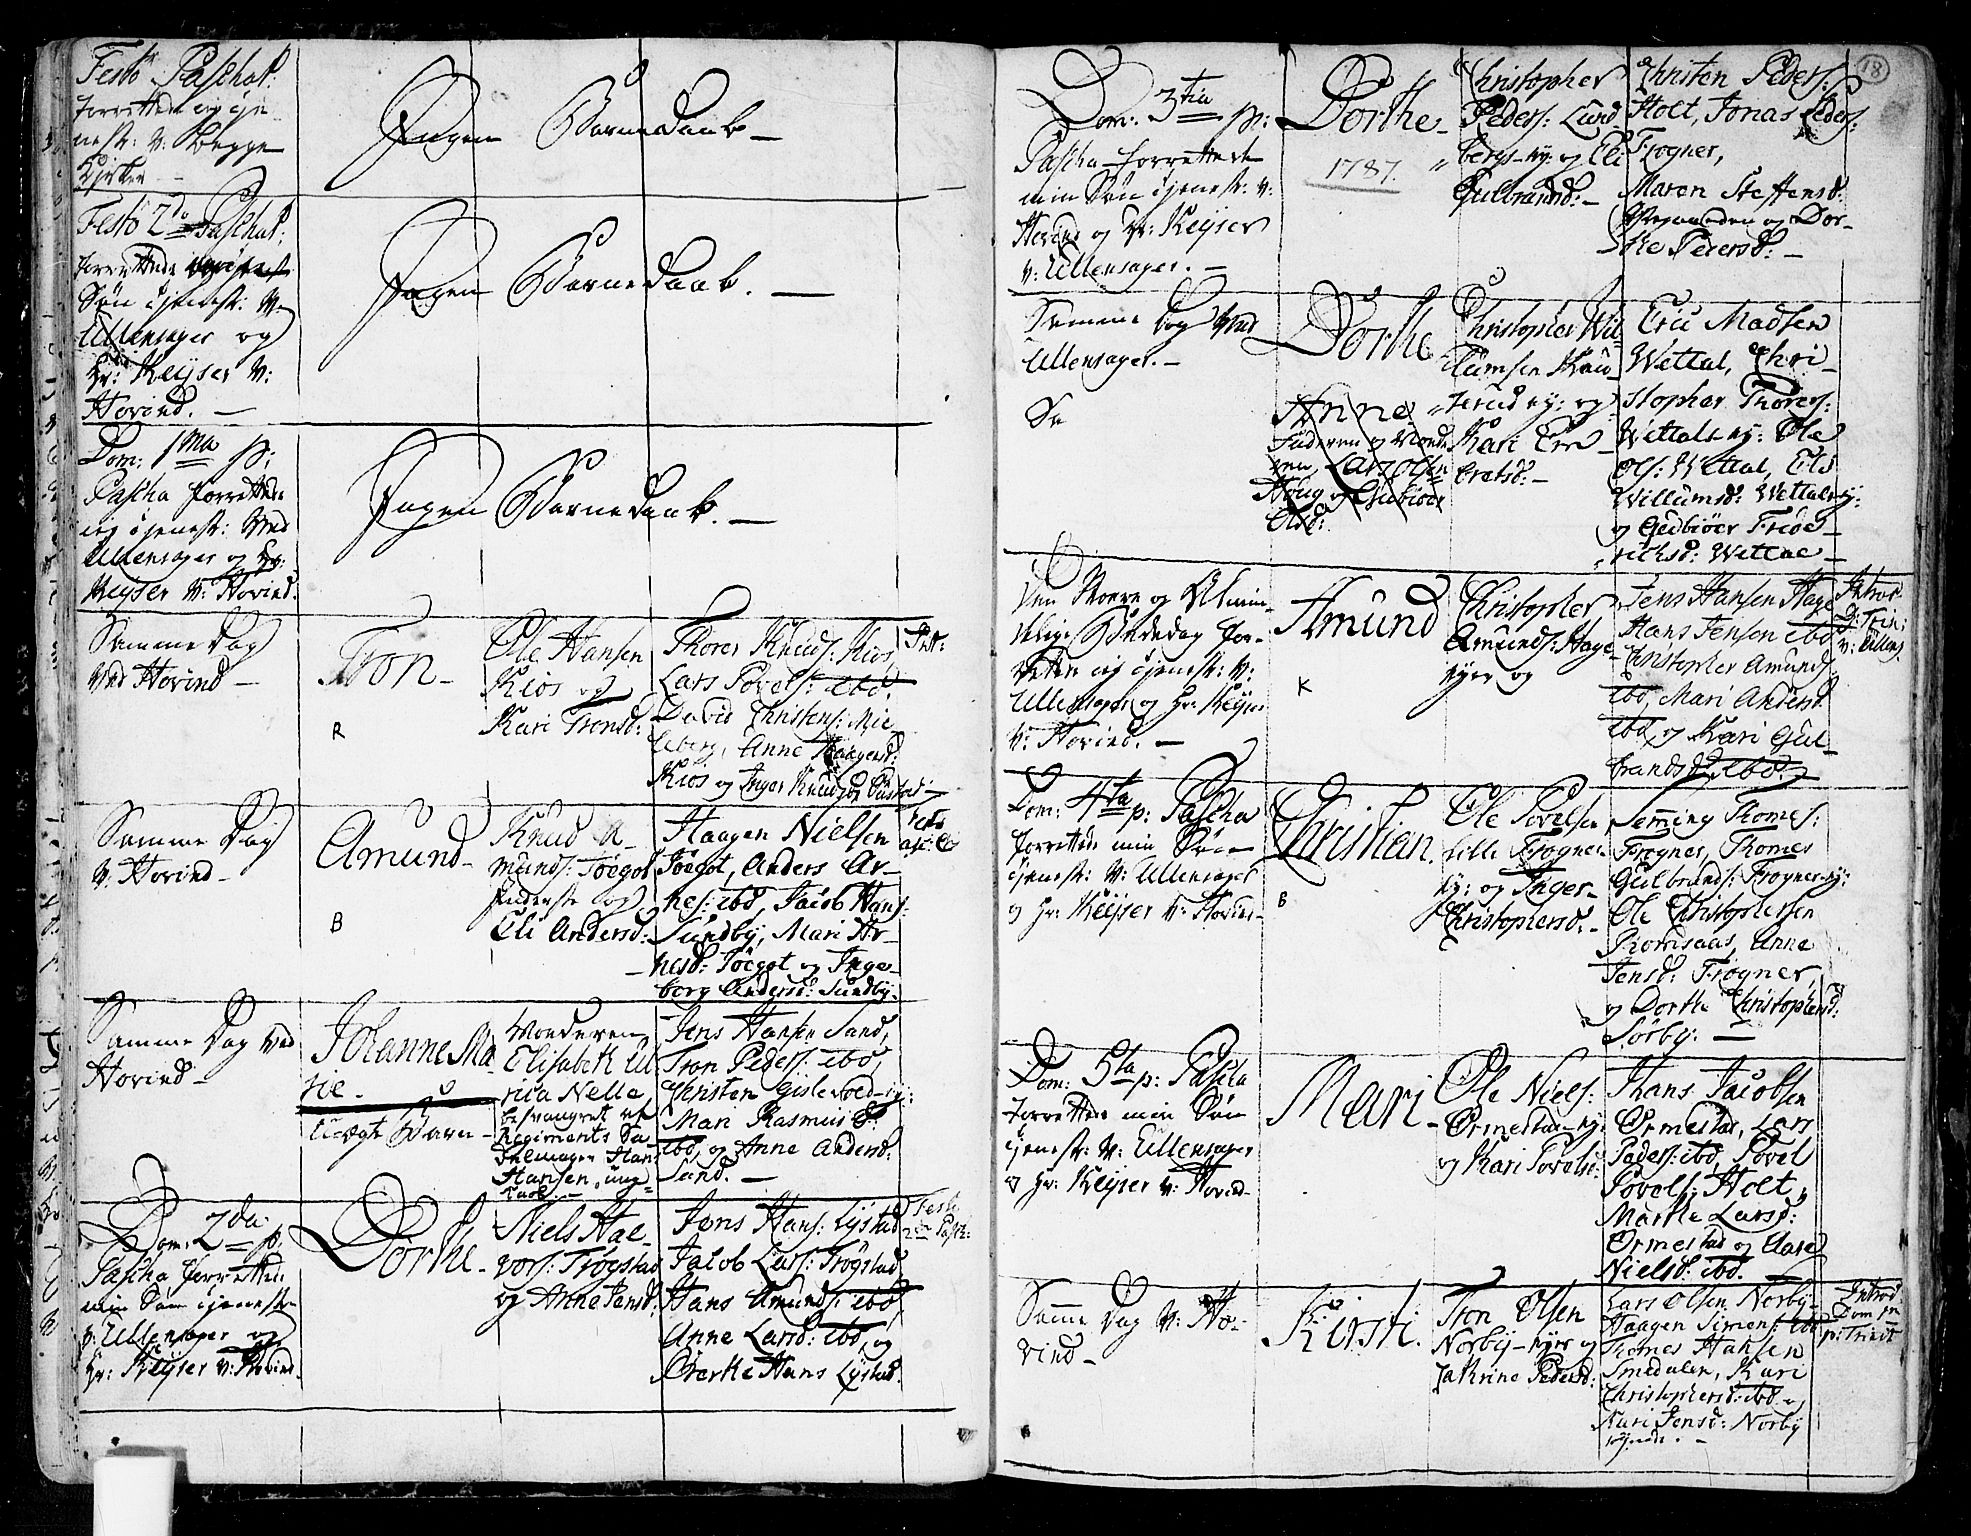 Festo Paschat:
forrettede ieg tje-
nest: v: begge
Kirker -
Ingen Barnedaab -
Festo 2do Paschat:
forrettede min
Søn tjenest: v:
Ullensager og
Hr: Keyser v:
Hovind. -
Ingen Barnedaab. -
Dom: 1ma p:
Pascha forrettede
ieg tjenest: ved
Ullensager og Hr:
Keyser v: Hovind.
Ingen Barnedaab. -
Samme Dag
ved Hovind -
Tron -
R
Ole Hansen
Kios og
Kari Tronsd:
Thores Knuds: Kios,
Lars Povels: ibd.
David Christens: Mie-
leberg, Anne Haagensd:
Kios og Inger Knudsdr
Int:
Samme Dag
v: Hovind -
Amund -
B
Knud A-
munds: Toegot
Inderste og
Eli Andersd:
Haagen Nielsen
Toegot, Anders Ar-
nes: ibd, Jacob Hans:
Sundby, Mari Ar-
nesd: Toegot og Inge-
borg Andersd: Sundby.
Samme Dag ved
Hovind -
Johanne Ma
rie -
Uægte Barn -
Moderen
Elisabeth Ul
rica Nelle,
besvangret af
Regiments Sa-
delmager Hans
Hansen, ung-
karl. -
Jens Hansen Sand,
Tron Peders: ibd,
Christen Gislevold-ey:
Mari Rasmus D:
ibd, og Anne Andersd:
Sand. -
Dom. 2da p:
Pascha forrettede
min Søn tjenest-
v: Ullensager og
Hr: Keyser v: Hovind.
Dorthe -
Niels Hal-
vors: Trøgstad
og Anne Jensd:
Jens Hans: Lystad
Jacob Lars: Trøgstad,
Hans Amunds: ibd
Anne Larsd: ibd, og
Dorthe Hans Lystad.
Festo
2do Pasch:
18
Dom: 3tia p:
Pascha forrettede
min Søn tjenest: v:
Hovind og Hr: Keyser
v: Ullensager. -
Dorthe -
1787.
Christopher
Peders: Lund-
bergs-ey: og Eli
Gulbrandsd: -
Christen Peders:
Holt, Jonas Peders:
Frogner,
Maren Steffensd:
og Dor-
the Pedersd: -
Samme Dag ved
Ullensager. -
Sa
Dorthe
Anne
Faderen og Mode
ren, Lars Olsen
Houg og Gubiør
Olsd:
Christopher Wil-
lumsen Skou-
lerud ey: og
Kari Em
bretsd: -
Eric Madsen
Wettal, Chri-
stopher Thores:
Wettals ey: Ole
Ols: Wettal, Els
Willumsd: Wettals ey:
og Gudbiør Fride-
richsd: Wettal -
Den Store og Almin-
delige Bededag for-
rettede ieg tjenest: v:
Ullensager og Hr: Keyser
v: Hovind. -
Amund
K
Christopher
Amunds: Hage-
eyer og
Jens Hansen Hage
Hans Jensen ibd
Christopher Amunds:
ibd, Mari Andersd
ibd, og Kari Gul-
brandsd: ibd.
Introd
v: Ullens.
Dom: 4ta p: Pascha
forrettede min Søn
tjenest: v: Ullensager
og Hr: Keyser v: Hovind -
Christian.
B
Ole Povelsen
Lille Frogner-
ey: og Inger
Christophersd: -
Semming Thomes:
Frogner, Thomes
Gulbrands: Frogner-ey:
Ole Christophersen
Romsaas, Anne
Jensd: Frogner,
og Dorthe Christophersd:
Sørby. -
Dom: 5ta p: Pascha
forrettede min Søn
tjenest: v: Ullensager
og Hr: Keyser v: Hovind -
Mari -
Ole Niels:
Ormestad-ey:
og Kari Povelsd:
Hans Jacobsen
Ormestad, Lars
Peders: ibd, Povel
Povels: Holt,
Marthe Larsd:
Ormestad og Aase
Nielsd: ibd. -
Samme Dag v: Ho-
vind -
Kirsti.
Tron Olsen
Norby-eyer og
Cathrine Pedersd:
Lars Olsen Norby-
Haagen Simens: ibd
Thomes Hansen
Smedalen, Kari
Christophersd: ibd og
Kari Jensd: Norby
Introd:
Dom
p: Trinit